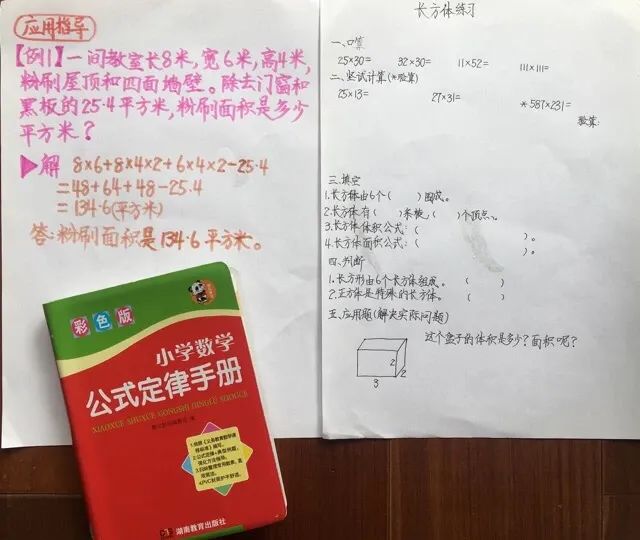 应用指导
【例1】一间教室长8米,宽6米,高4米,
粉刷屋顶和四面墙壁。除去门窗和
黑板的25.4平方米,粉刷面积是多少
平方米?
▶解 8×6+8×4×2+6×4×2-25.4
=48+64+48-25.4
=134.6(平方米)
答:粉刷面积是134.6平方米。
彩色版
小学数学
公式定律手册
XIAOXUE SHUXUE GONGSHI DINGLÜ SHOUCE
湖南教育出版社
长方体练习
一、口算
25×30= 32×30= 11×52= 111×111=
二、竖试计算(*验算)
25×13= 27×31= *587×231=
验算:
三、填空
1.长方体由6个( )围成。
2.长方体有( )条棱,( )个顶点、。
3.长方体体积公式:( )。
4.长方体面积公式:( )。
四、判断
1.长方形由6个长方体组成。( )
2.正方体是特殊的长方体。( )
五、应用题(解决实际问题)
这个盒子的体积是多少?面积呢?
2
2
3